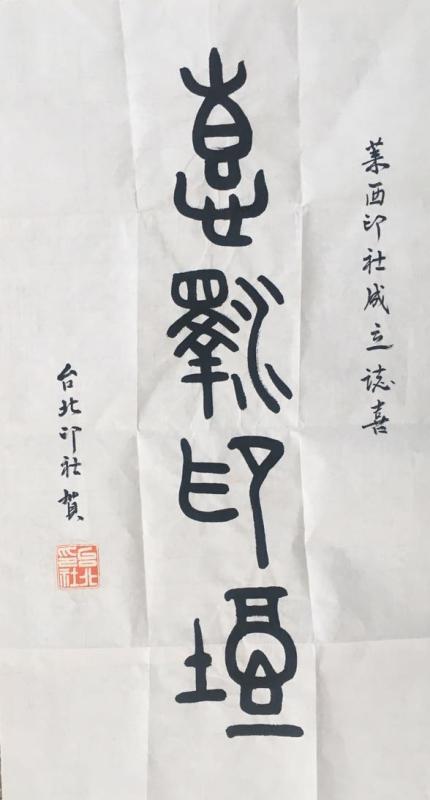 莱西印社成立誌喜
悳澤印壇
台北印社賀
台北印社